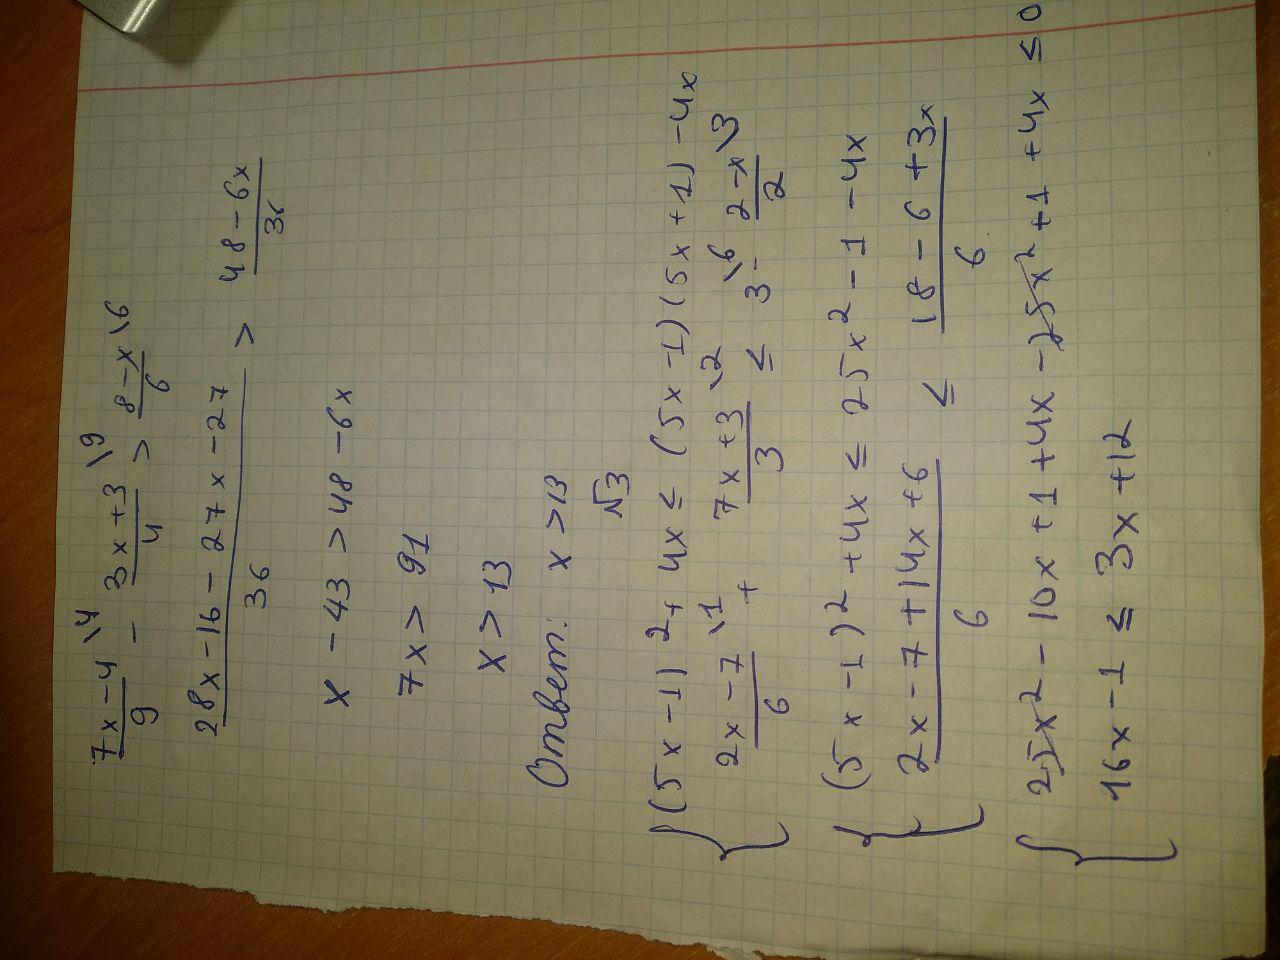 (7x-4)/9 \4 - (3x+3)/4 \9 > (8-x)/6 \6
(28x-16-27x-27)/36 > (48-6x)/36
x-43>48-6x
7x>91
x>13
Ответ: x>13
√3
{ (5x-1)²+4x≤(5x-1)(5x+1)-4x
(2x-7)/6 \1 + (7x+3)/3 \2 ≤ 3 \6 - (2-x)/2 \3
{ (5x-1)²+4x≤25x²-1-4x
(2x-7+14x+6)/6 ≤ (18-6+3x)/6
{ 25x²-10x+1+4x-25x²+1+4x≤0
16x-1≤3x+12